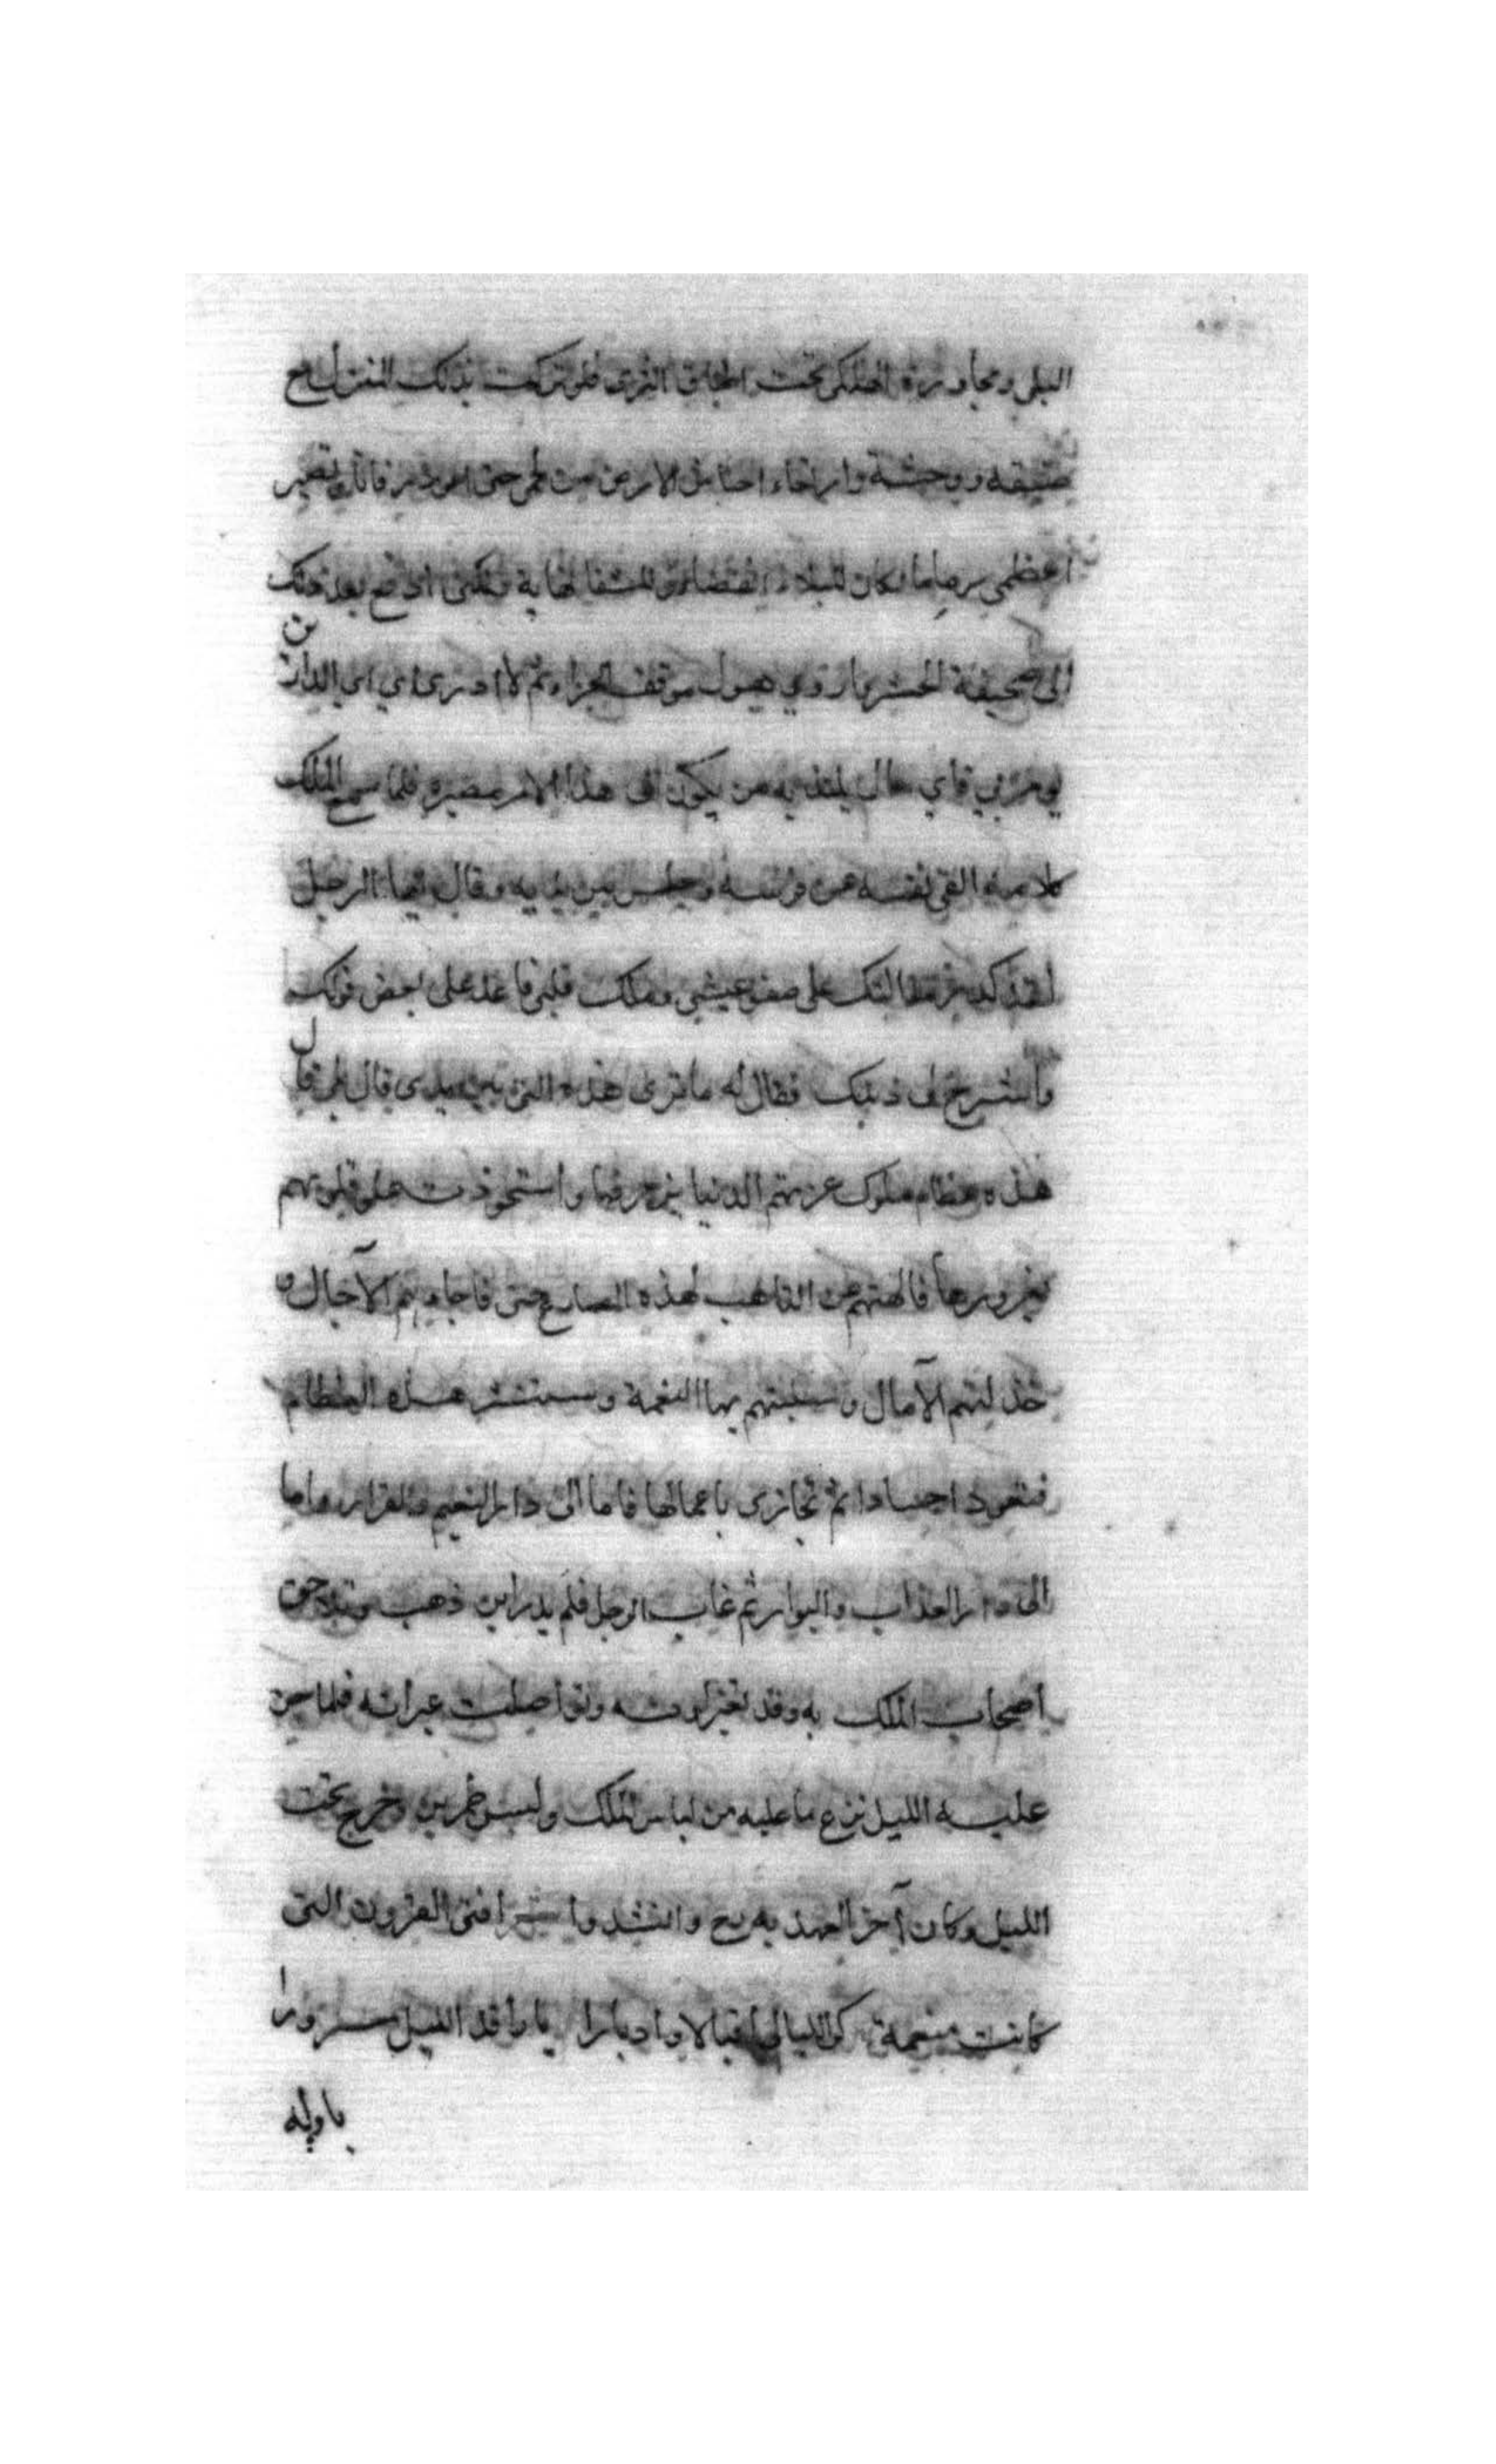 البلى ومجاورة الهلكى تحت اطباق الثرى فلو تركت بذلك المنزل مع
ضيقه ووحشته وارتعاء احناش الارض من لحمي حتى اعود رفاتا وتصير
اعظمي رماما لكان للبلاء انقضاء وللشقا نهاية ولكني ادفع بعد ذلك
الى صيحة الحشر وارد هول موقف الجزاء ثم لا ادري الى اي الدارين
يومر بي فاي حال يلتذ به من يكون الى هذا الامر مصيره فلما سمع الملك
كلامه القى نفسه عن فرسه وجلس بين يديه وقال ايها الرجل
لقد كدر مقالتك علي صفو عيشي وملك قلبي فاعد علي بعض قولك
واشرح لي دينك فقال له ما ترى هذه التي بين يدي قال بلى قال
هذه عظام ملوك غرتهم الدنيا بزخرفها واستحوذت على قلوبهم
بغرورها فالهتهم عن التاهب لهذه المصارع حتى فاجأتهم الآجال و
خذلتهم الآمال وسلبتهم بها النعمة وستنشر هذه العظام
فتعود اجسادا ثم تجازى باعمالها فاما الى دار النعيم والقرار واما
الى دار العذاب والبوار ثم غاب الرجل فلم يدر اين ذهب وتلاحق
اصحاب الملك به وقد تغير لونه وتواصلت عبراته فلما جن
عليه الليل نزع ما عليه من لباس الملك ولبس طمرين وخرج تحت
الليل وكان آخر العهد به وانشدوا افنى القرون التي
كانت منعمة كر الليالي اقبالا وادبارا يا راقد الليل مسرورا
باوله